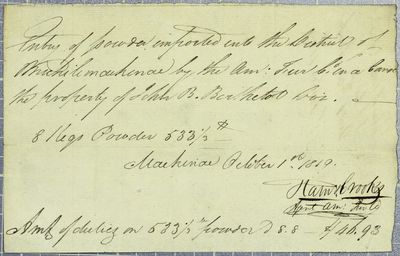 Entry of powder imported into the District of
Michilimackinac by the Am: Fur Co. in a Canoe
the property of John B. Berthelot viz. —
8 Kegs Powder 533½ #
Mackinac October 1st 1819.
Ram. Crooks
Agent Am: Fur Co
Amt of duties on 533½ # powder @ 8.8 — $46.93